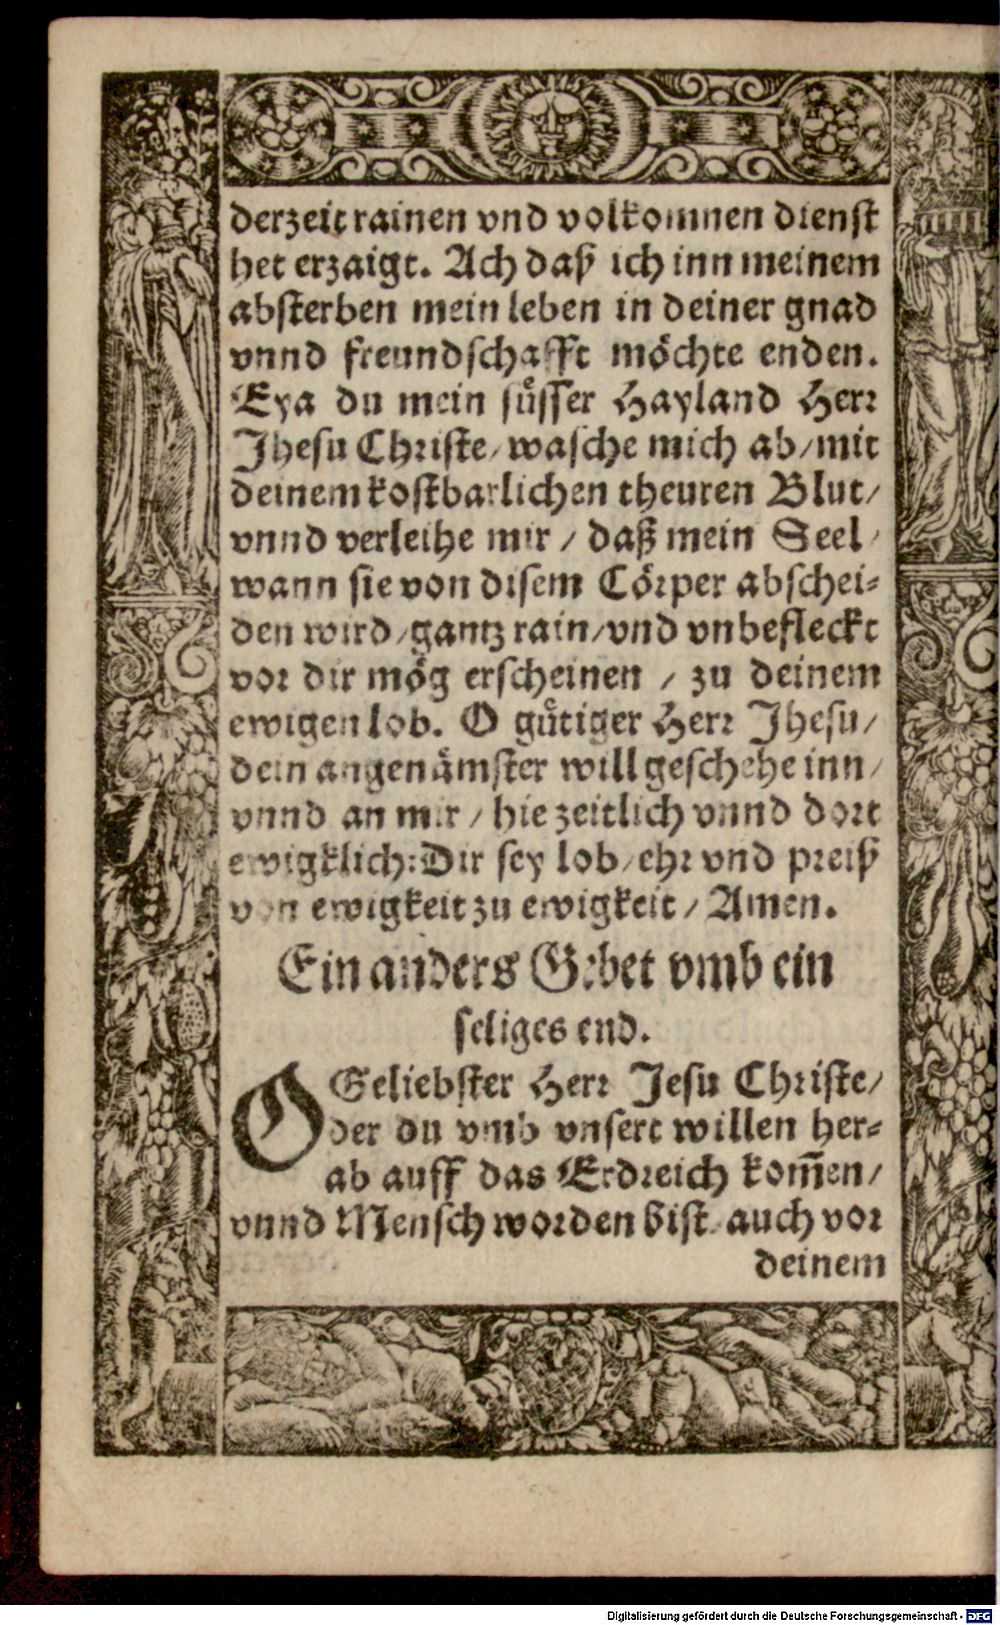 derzeit rainen vnd volkommen dienst
het erzaigt. Ach daß ich inn meinem
absterben mein leben in deiner gnad
vnnd freundschafft möchte enden.
Eya du mein süsser Hayland Herr
Jhesu Christe/ wasche mich ab/ mit
deinem kostbarlichen theuren Blut/
vnnd verleihe mir / daß mein Seel/
wann sie von disem Cörper abschei-
den wird/ gantz rain/ vnd vnbefleckt
vor dir mög erscheinen / zu deinem
ewigen lob. O gütiger Herr Jhesu/
dein angenämster will geschehe inn/
vnnd an mir / hie zeitlich vnnd dort
ewigklich: Dir sey lob/ ehr vnd preiß
von ewigkeit zu ewigkeit / Amen.
Ein anders Gebet vmb ein
seliges end.
O Geliebster Herr Jesu Christe/
der du vmb vnsert willen her-
ab auff das Erdreich kom̄en/
vnnd Mensch worden bist/ auch vor
deinem
Digitalisierung gefördert durch die Deutsche Forschungsgemeinschaft - DFG